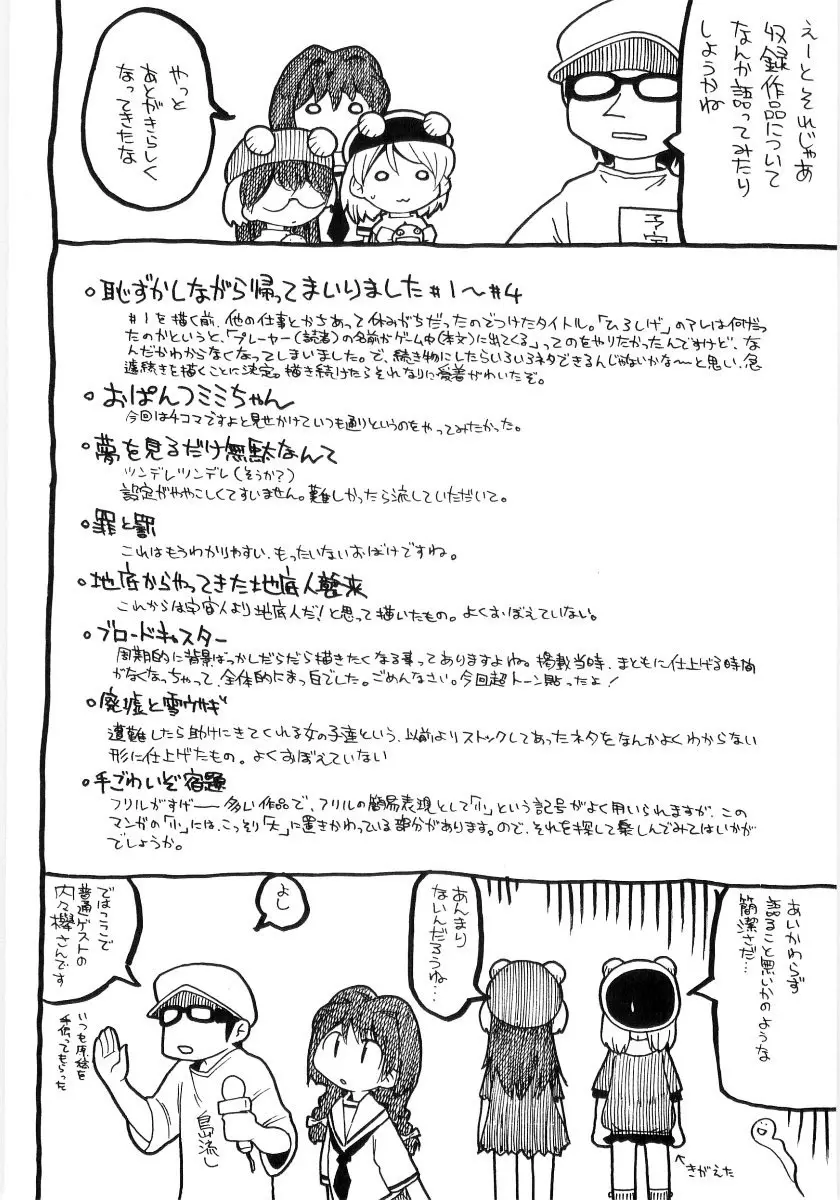 えーとそれじゃあ
収録作品について
なんか語ってみたり
しようかね
やっと
あとがきらしく
なってきたな
。恥ずかしながら帰ってまいりました#1〜#4
#1を描く前、他の仕事とかちあって休みがちだったのでつけたタイトル。「ひろしげ」のアレは何だっ
たのかというと、「プレーヤー(読者)の名前がゲーム中(本文)に出てくる」ってのをやりたかったんですけど、な
んだかわからなくなってしまいました。で、続き物にしたらいろいろネタできるんじゃないかな〜と思い、急
遽続きを描くことに決定。描き続けたらそれなりに愛着がわいたぞ。
。おぱんつミミちゃん
今回は4コマですよと見せかけていつも通りというのをやってみたかった。
。夢を見るだけ無駄なんて
ツンデレツンデレ(そうか?)
設定がややこしくてすいません。難しかったら流していただいて。
。罪と罰
これはもうわかりやすい、もったいないおばけですね。
。地底からやってきた地底人襲来
これからは宇宙人より地底人だ!と思って描いたもの。よくおぼえていない。
。ブロードキャスター
周期的に背景ばっかしだらだら描きたくなる事ってありますよね。掲載当時、まともに仕上げる時間
がなくなっちゃって、全体的にまっ白でした。ごめんなさい。今回超トーン貼ったよ!
。廃墟と雪ウサギ
遭難したら助けにきてくれる女の子達という、以前よりストックしてあったネタをなんかよくわからない
形に仕上げたもの。よくおぼえていない
。手ごわいぞ宿題
フリルがすげー多い作品で、フリルの簡易表現として「小」という記号がよく用いられますが、この
マンガの「小」には、こっそり「大」に置きかわっている部分があります。ので、それを探して楽しんでみてはいかが
でしょうか。
あいかわらず
語ること無いかのような
簡潔さだ…
あんまり
ないんだろうね…
きがえた
よし
ではここで
普通ゲストの
内々欅さんです
いつも原稿を
手伝ってもらった
島流し